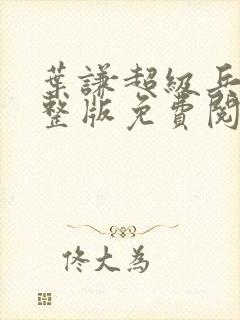 葉謙超級兵
整版免費閱
佟大為